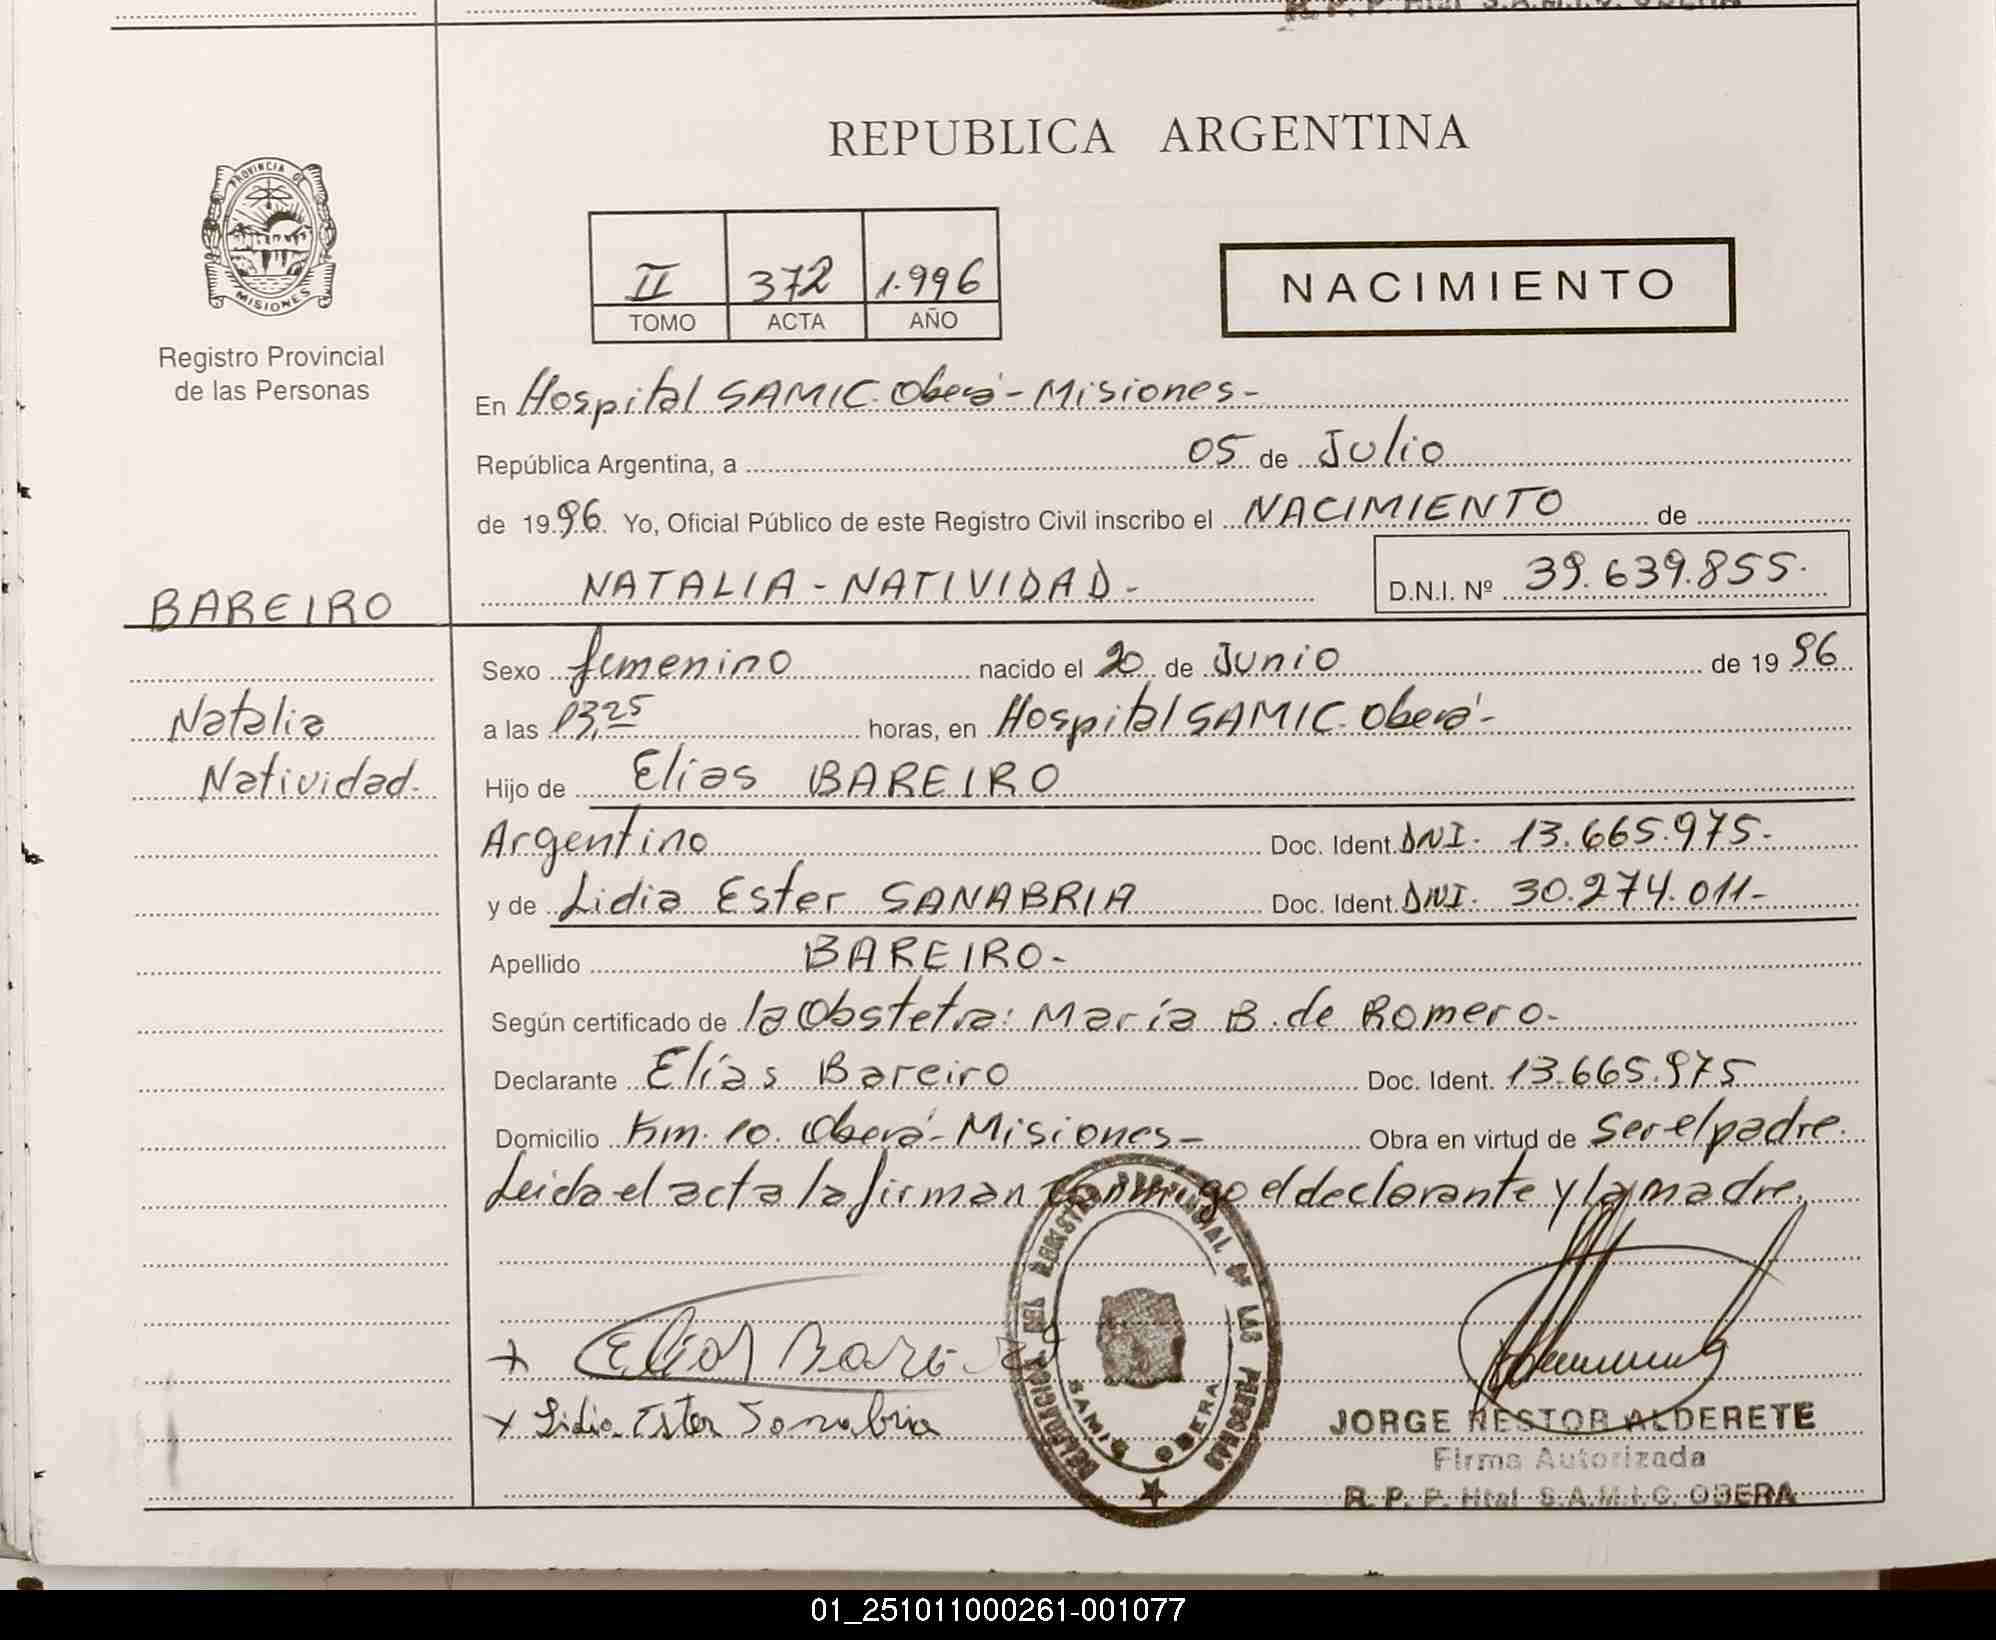 R. P. P. Htal S.A.M.I.C. OBERA
PROVINCIA DE
MISIONES
Registro Provincial
de las Personas
REPUBLICA ARGENTINA
II 372 1.996
TOMO ACTA AÑO
NACIMIENTO
En Hospital SAMIC. Oberá - Misiones -
República Argentina, a 05 de Julio
de 1996. Yo, Oficial Público de este Registro Civil inscribo el NACIMIENTO de
NATALIA - NATIVIDAD -
D.N.I. Nº 39.639.855.
BAREIRO
Natalia
Natividad.
Sexo femenino nacido el 20 de Junio de 1996
a las 13,25 horas, en Hospital SAMIC. Oberá -
Hijo de Elias BAREIRO
Argentino Doc. Ident. DNI. 13.665.975-
y de Lidia Ester SANABRIA Doc. Ident. DNI. 30.274.011-
Apellido BAREIRO-
Según certificado de la Obstetra: María B. de Romero-
Declarante Elías Bareiro Doc. Ident. 13.665.975
Domicilio Km. 10. Oberá - Misiones - Obra en virtud de Ser el padre.
Leida el acta la firman conmigo el declarante y la madre.
x Elias Bareiro
x Lidia Ester Sanabria
DELEGACION DEL REGISTRO PROVINCIAL DE LAS PERSONAS
SAMIC OBERA
JORGE NESTOR ALDERETE
Firma Autorizada
R. P. P. Htal S.A.M.I.C. OBERA
01_251011000261-001077